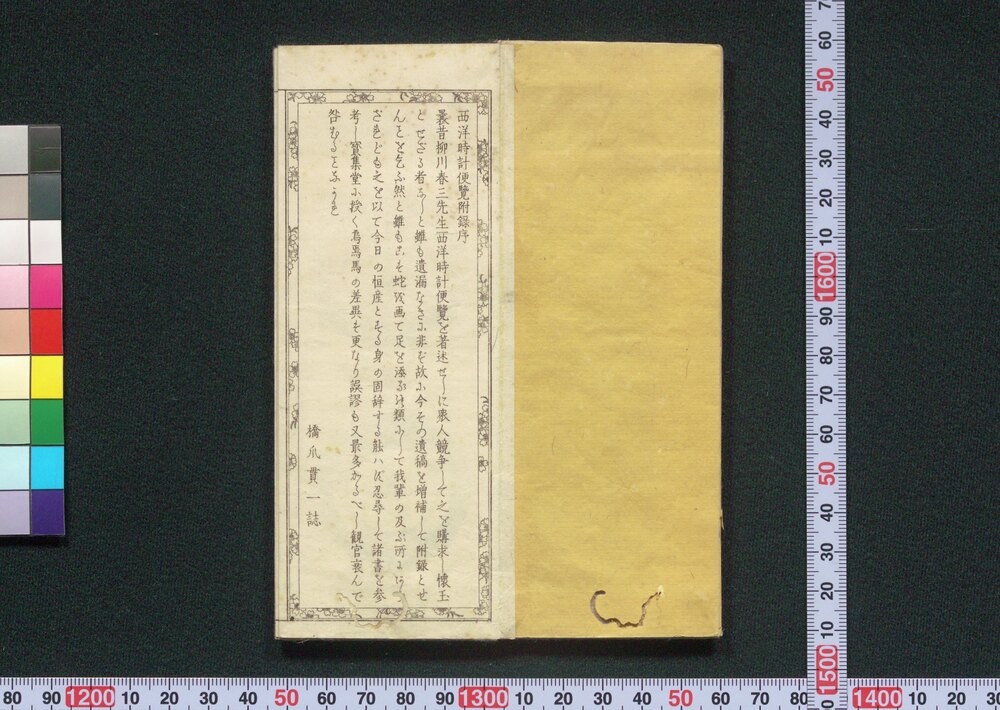 西洋時計便覧附録序
曩昔柳川春三先生西洋時計便覧を著述せしに衆人競争して之を購求し懐玉
とせざる者なしと雖も遺漏なきに非ず故に今その遺稿を増補して附録とせ
んとを乞ふ然と雖もこそ蛇を画て足を添るの類にして我輩の及ぶ所にあらっ
ざれども之を以て今日の恒産とする身の固辞する能ハず忍尋して諸書を参
考し寳集堂に授く烏焉馬の差異も更なり誤謬も又最多かるべし観官哀んで
咎むることなかれ
橋爪貫一誌
80 90 1200 10 20 30 40 50 60 70 80 90 1300 10 20 30 40 50 60 70 80 90 1400 10 20 30
7 60 50 40 30 20 10 1600 90 80 70 60 50 40 30 20 10 1500